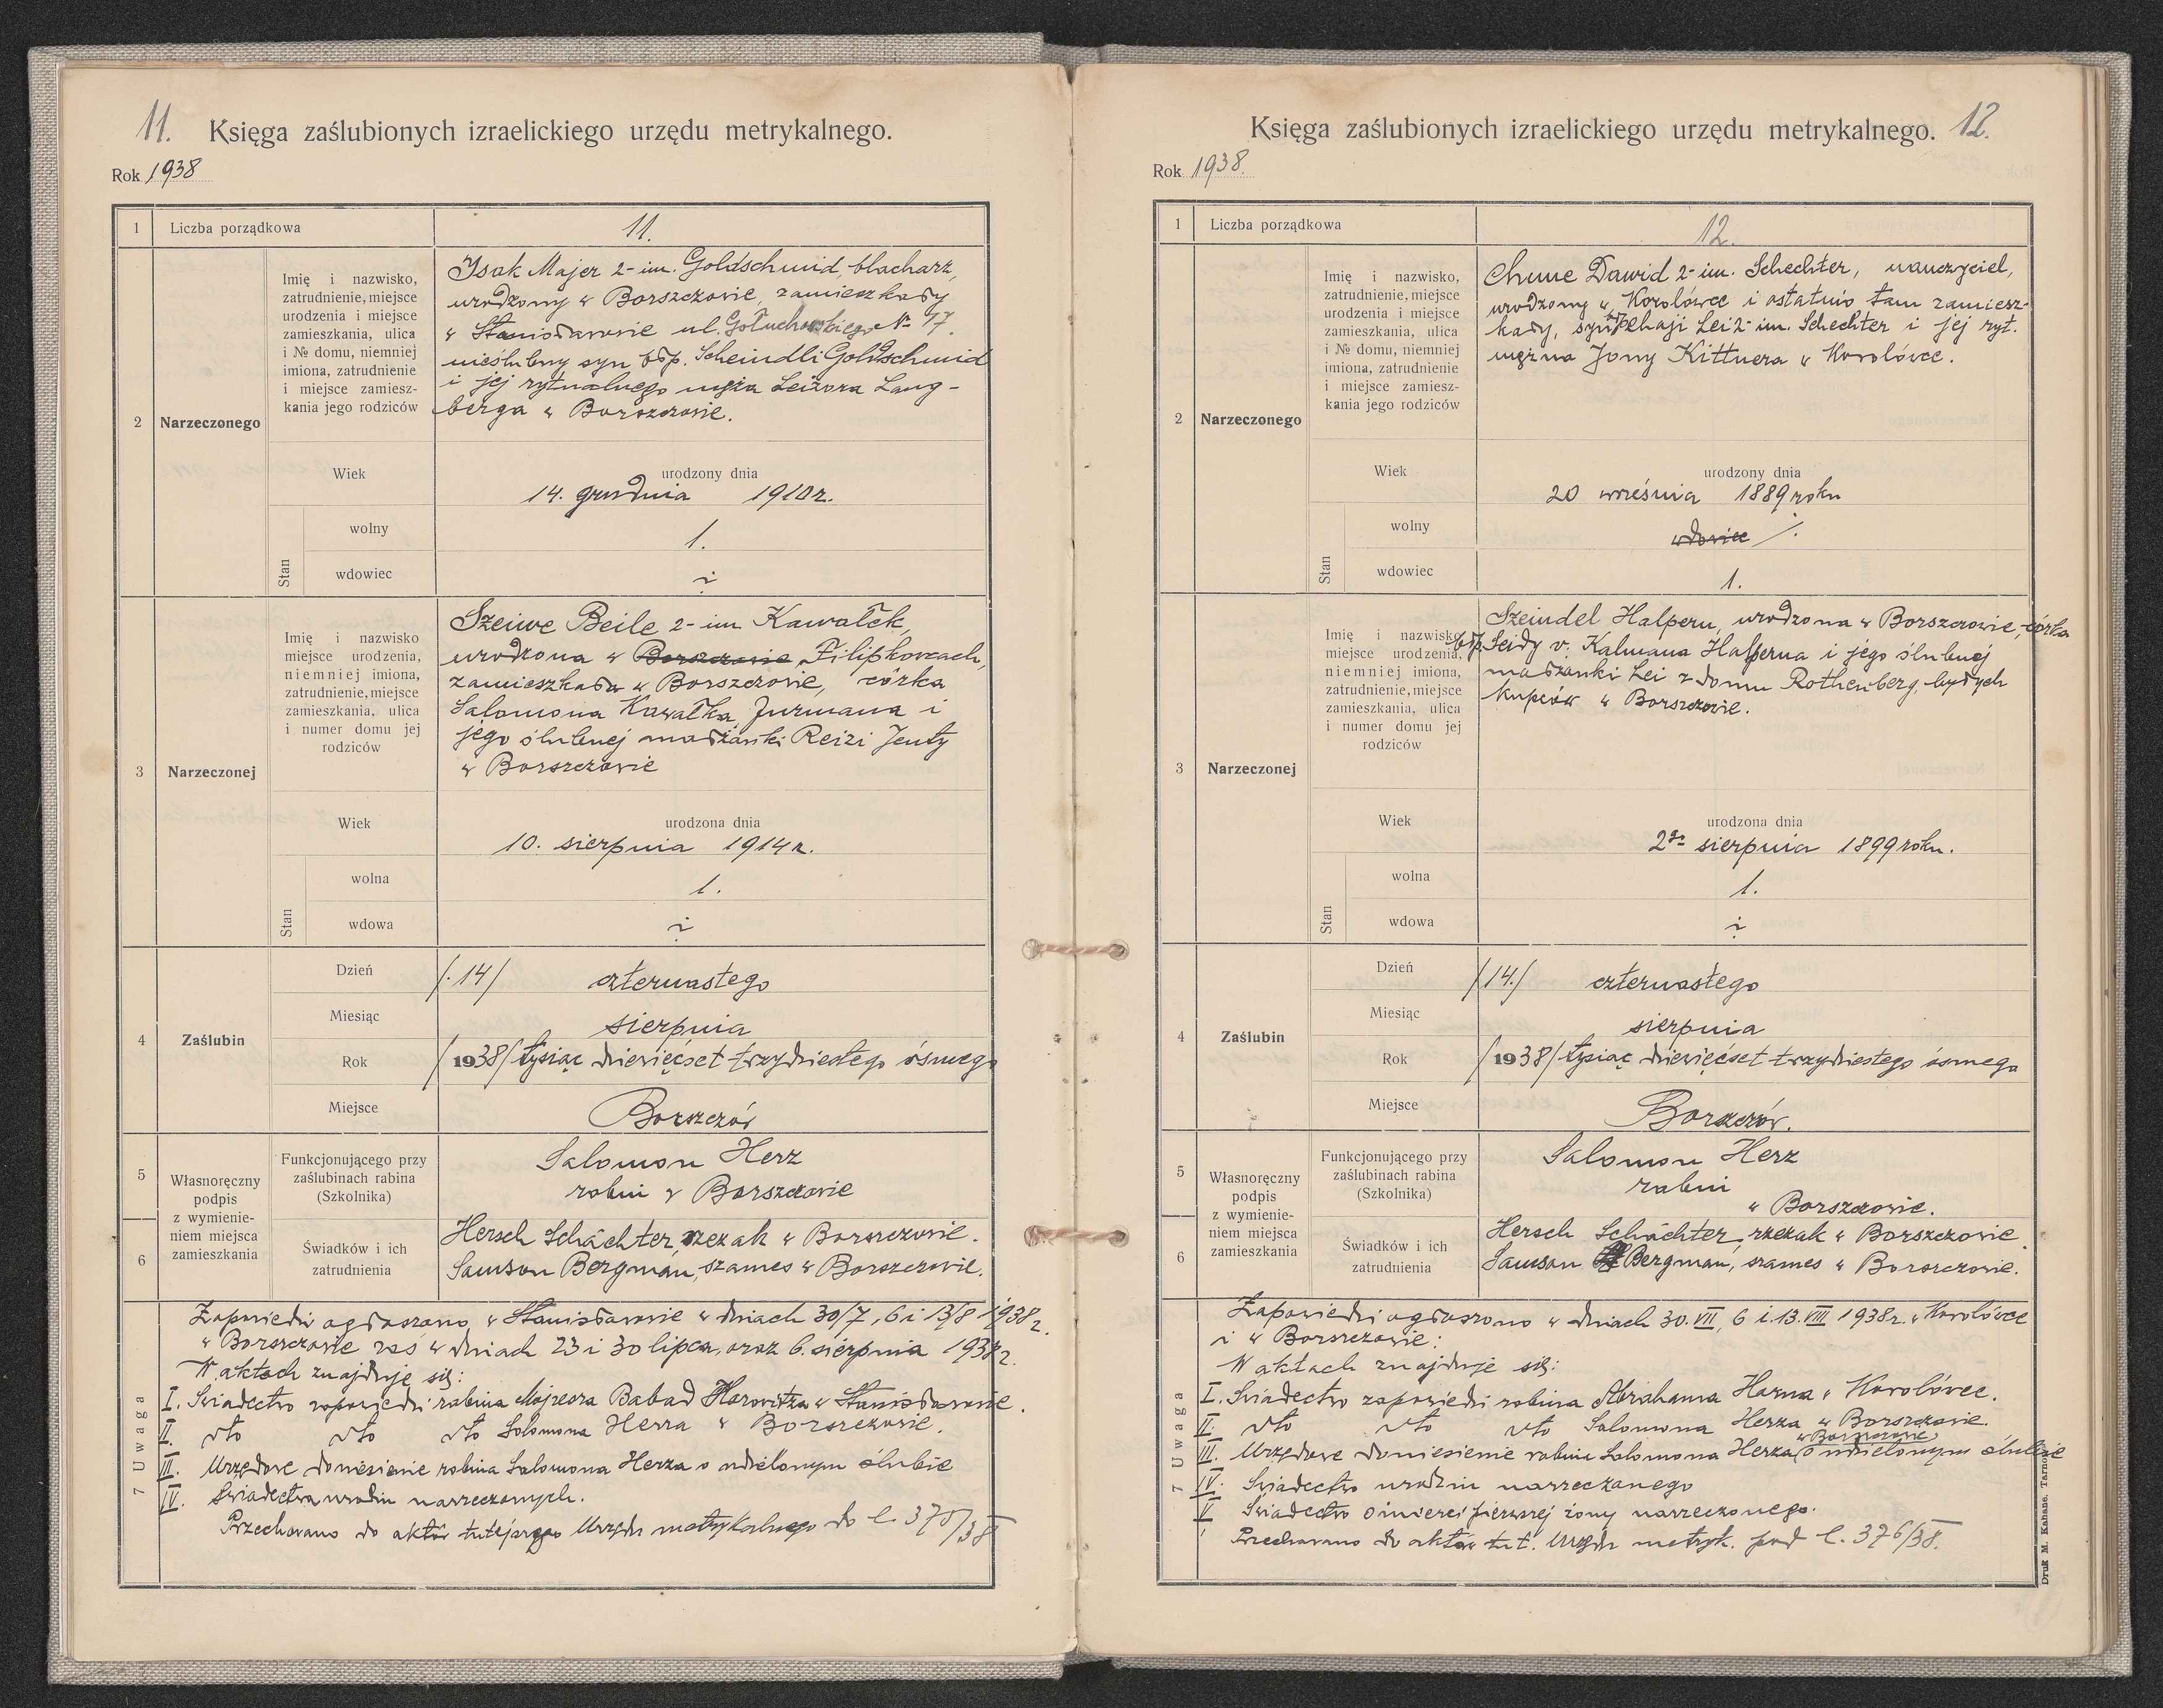 11.
Księga zaślubionych izraelickiego urzędu metrykalnego.
Rok 1938
1 Liczba porządkowa 11.
2 Narzeczonego
Imię i nazwisko,
zatrudnienie, miejsce
urodzenia i miejsce
zamieszkania, ulica
i № domu, niemniej
imiona, zatrudnienie
i miejsce zamiesz-
kania jego rodziców
Isak Majer 2-im. Goldschmid, blacharz,
urodzony w Borszczowie, zamieszkały
w Stanisławowie ul. Gołuchowskiego № 17.
nieślubny syn Scheindli Goldschmid
i jej rytualnego męża Leizora Lang-
berga w Borszczowie.
Wiek
urodzony dnia
14. grudnia 1910 r.
Stan
wolny 1.
wdowiec
3 Narzeczonej
Imię i nazwisko
miejsce urodzenia,
niemniej imiona,
zatrudnienie, miejsce
zamieszkania, ulica
i numer domu jej
rodziców
Szeiwe Beile 2-im Kawałek,
urodzona w Borszczowie, Filipkowcach,
zamieszkała w Borszczowie, córka
Salomona Kawałka, Jurmana i
jego ślubnej małżanki Reizi Jenty
w Borszczowie
Wiek
urodzona dnia
10. sierpnia 1914 r.
Stan
wolna 1.
wdowa
4 Zaślubin
Dzień /.14/ czternastego
Miesiąc sierpnia
Rok /1938/ tysiąc dziewięćset trzydziestego ósmego
Miejsce Borszczów
5
6
Własnoręczny
podpis
z wymienie-
niem miejsca
zamieszkania
Funkcjonującego przy
zaślubinach rabina
(Szkolnika)
Salomon Herz
rabin w Borszczowie
Świadków i ich
zatrudnienia
Hersch Schächter, rzezak w Borszczowie.
Samson Bergman, szames w Borszczowie.
7 Uwaga
Zapowiedzi ogłoszono w Stanisławowie w dniach 30/7, 6 i 13/8 1938 r.
w Borszczowie zaś w dniach 23 i 30 lipca, oraz 6. sierpnia 1938 r.
W aktach znajduje się:
I. Świadectwo zapowiedzi rabina Majera Babad Horowitza w Stanisławowie.
II. dto dto dto Salomona Herza w Borszczowie.
III. Urzędowe doniesienie rabina Salomona Herza o udzielonym ślubie
IV. Świadectwa urodzin narzeczonych.
Przechowano do aktów tutejszego Urzędu metrykalnego do l. 375/38
12.
Księga zaślubionych izraelickiego urzędu metrykalnego.
Rok 1938.
1 Liczba porządkowa 12.
2 Narzeczonego
Imię i nazwisko,
zatrudnienie, miejsce
urodzenia i miejsce
zamieszkania, ulica
i № domu, niemniej
imiona, zatrudnienie
i miejsce zamiesz-
kania jego rodziców
Chune Dawid 2-im. Schechter, nauczyciel,
urodzony w Korolówce i ostatnio tam zamiesz-
kały, syn Chaji Lei 2-im. Schechter i jej ryt.
mężna Jony Kittnera w Korolówce.
Wiek
urodzony dnia
20 września 1889 roku
Stan
wolny wdowiec /.
wdowiec 1.
3 Narzeczonej
Imię i nazwisko
miejsce urodzenia,
niemniej imiona,
zatrudnienie, miejsce
zamieszkania, ulica
i numer domu jej
rodziców
Szeindel Halpern, urodzona w Borszczowie, córka
Seidy v. Kalmana Halperna i jego ślubnej
małżanki Lei z domu Rothenberg, byłych
kupców w Borszczowie.
Wiek
urodzona dnia
2go sierpnia 1899 roku.
Stan
wolna 1.
wdowa
4 Zaślubin
Dzień /14./ czternastego
Miesiąc sierpnia
Rok /1938/ tysiąc dziewięćset trzydziestego ósmego
Miejsce Borszczów.
5
6
Własnoręczny
podpis
z wymienie-
niem miejsca
zamieszkania
Funkcjonującego przy
zaślubinach rabina
(Szkolnika)
Salomon Herz
rabin
w Borszczowie.
Świadków i ich
zatrudnienia
Hersch Schächter, rzezak w Borszczowie.
Samson Bergman, szames w Borszczowie.
7 Uwaga
Zapowiedzi ogłoszono w dniach 30.VII, 6 i 13.VIII 1938 r. w Korolówce
i w Borszczowie:
W aktach znajduje się:
I. Świadectwo zapowiedzi rabina Abrahama w Korolówce.
II. dto dto dto Salomona Herza w Borszczowie.
III. Urzędowe doniesienie rabina Salomona Herza w Borszczowie o udzielonym ślubie
IV. Świadectwo urodzin narzeczonego
V Świadectwo śmierci pierwszej żony narzeczonego.
Przechowano do aktów tut. Urzędu metryk. pod l. 376/38.
Druk M. Kahane, Tarnopol